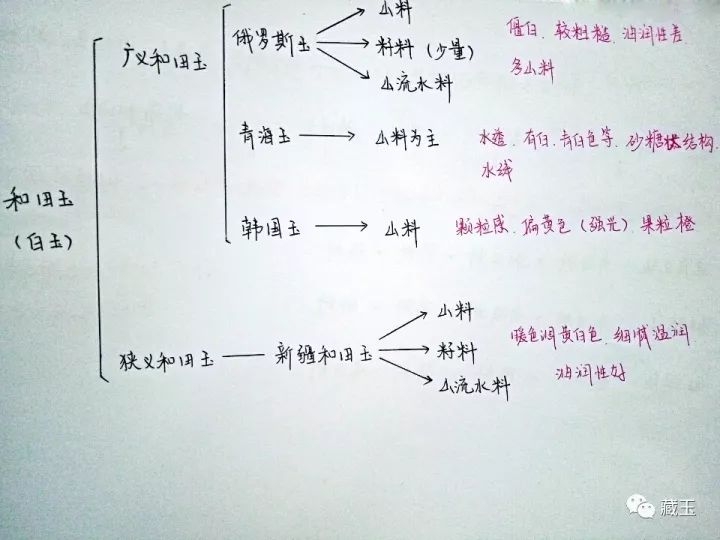 和田玉
(白玉)
广义和田玉
俄罗斯玉
山料
籽料(少量)
山流水料
僵白、较粗糙、油润性差
多山料
青海玉
山料为主
水透、有白、青白色等、砂糖状结构、
水线
韩国玉
山料
颗粒感、偏黄色(强光)、果粒橙
狭义和田玉
新疆和田玉
山料
籽料
山流水料
暖色调黄白色、细腻温润
油润性好
藏玉